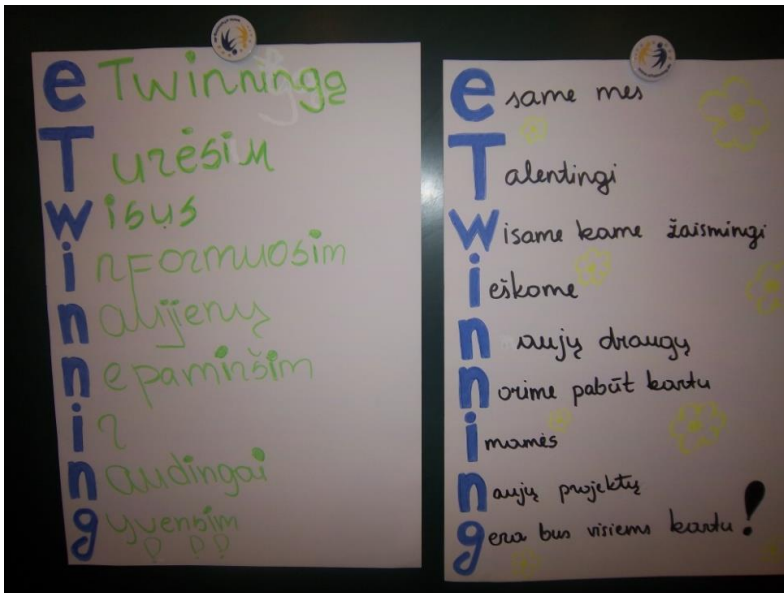 eTwinningą
Turėsim
wisus
informuosim
naujienų
nepamiršim
ir
naudingai
gyvensim
esame mes
Talentingi
wisame kame žaismingi
ieškome
naujų draugų
norime pabūt kartu
imamės
naujų projektų
gera bus visiems kartu!